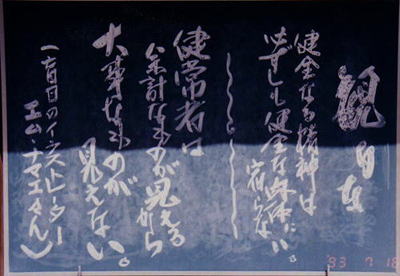 観自在
健全なる精神は
必ずしも健全な身体に
宿らない。
健常者は
余計なものが見える
から
大事なものが
見えない。
(盲目のイラストレーター
エム・ナマエさん)
'93 7 18